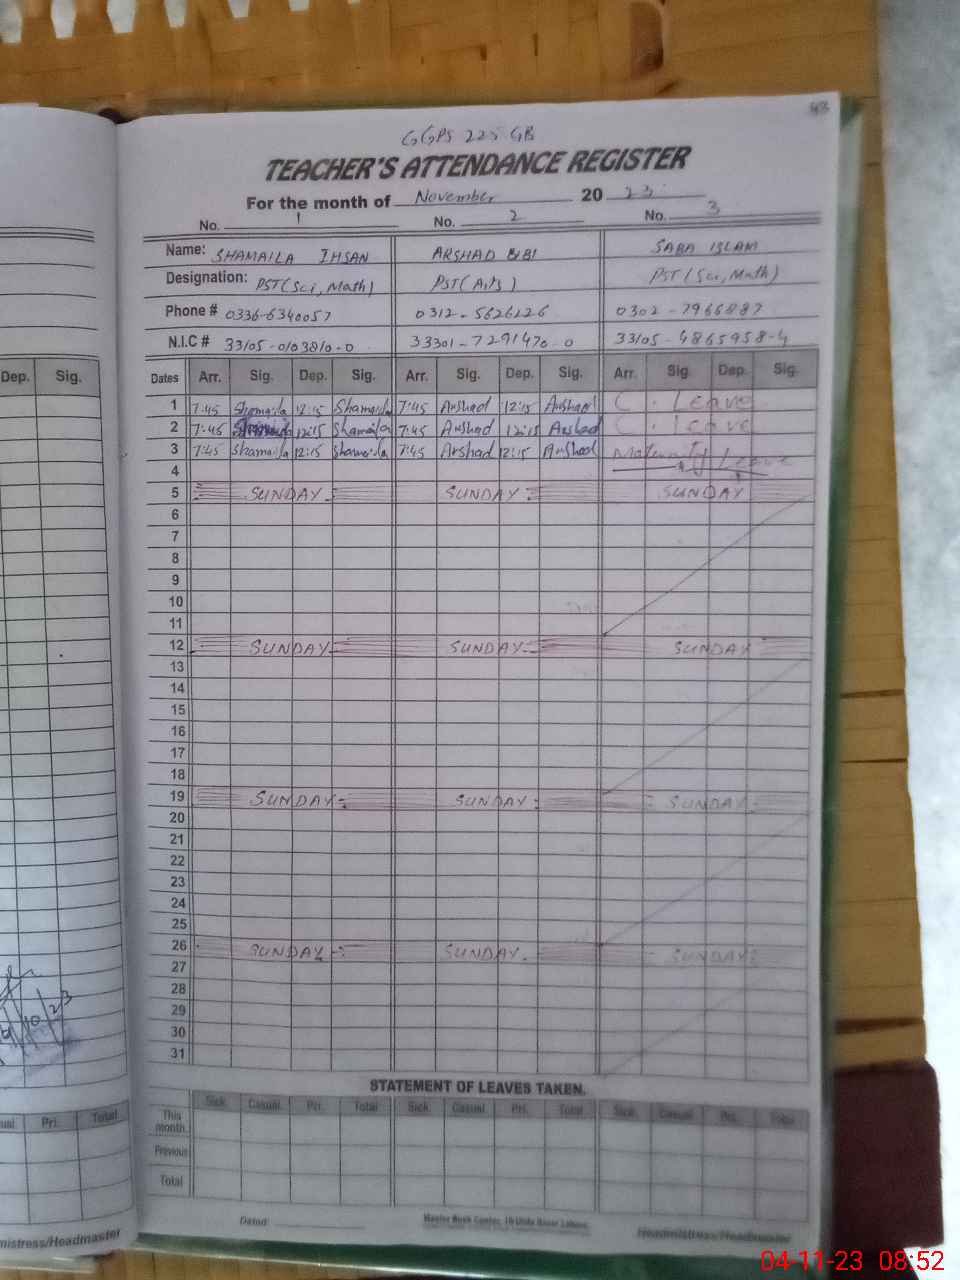 43
GGPS 225 GB
TEACHER'S ATTENDANCE REGISTER
For the month of November 2023
No. 1 No. 2 No. 3
Name: SHAMAILA IHSAN ARSHAD BIBI SABA ISLAM
Designation: PST(Sci, Math) PST(Arts) PST(Sci, Math)
Phone # 0336-6340057 0312-5626126 0302-7966887
N.I.C # 33105-0103810-0 33301-7291470-0 33105-4865958-4
Dep. Sig. Dates Arr. Sig. Dep. Sig. Arr. Sig. Dep. Sig. Arr. Sig. Dep. Sig.
1 7:45 Shamaila 12:15 Shamaila 7:45 Arshad 12:15 Arshad C. Leave
2 7:45 Shamaila 12:15 Shamaila 7:45 Arshad 12:15 Arshad C. Leave
3 7:45 Shamaila 12:15 Shamaila 7:45 Arshad 12:15 Arshad Maternity Leave
4
5 SUNDAY SUNDAY SUNDAY
6
7
8
9
10
11
12 SUNDAY SUNDAY SUNDAY
13
14
15
16
17
18
19 SUNDAY SUNDAY SUNDAY
20
21
22
23
24
25
26 SUNDAY SUNDAY SUNDAY
27
28
29
30
31
STATEMENT OF LEAVES TAKEN.
Sick. Casual. Pri. Total Sick. Casual. Pri. Total Sick. Casual. Pri. Total
This month
Previous
Total
Pri. Total
Dated:
Master Book Center, Urdu Bazar Lahore.
Headmistress/Headmaster
mistress/Headmaster
04-11-23 08:52